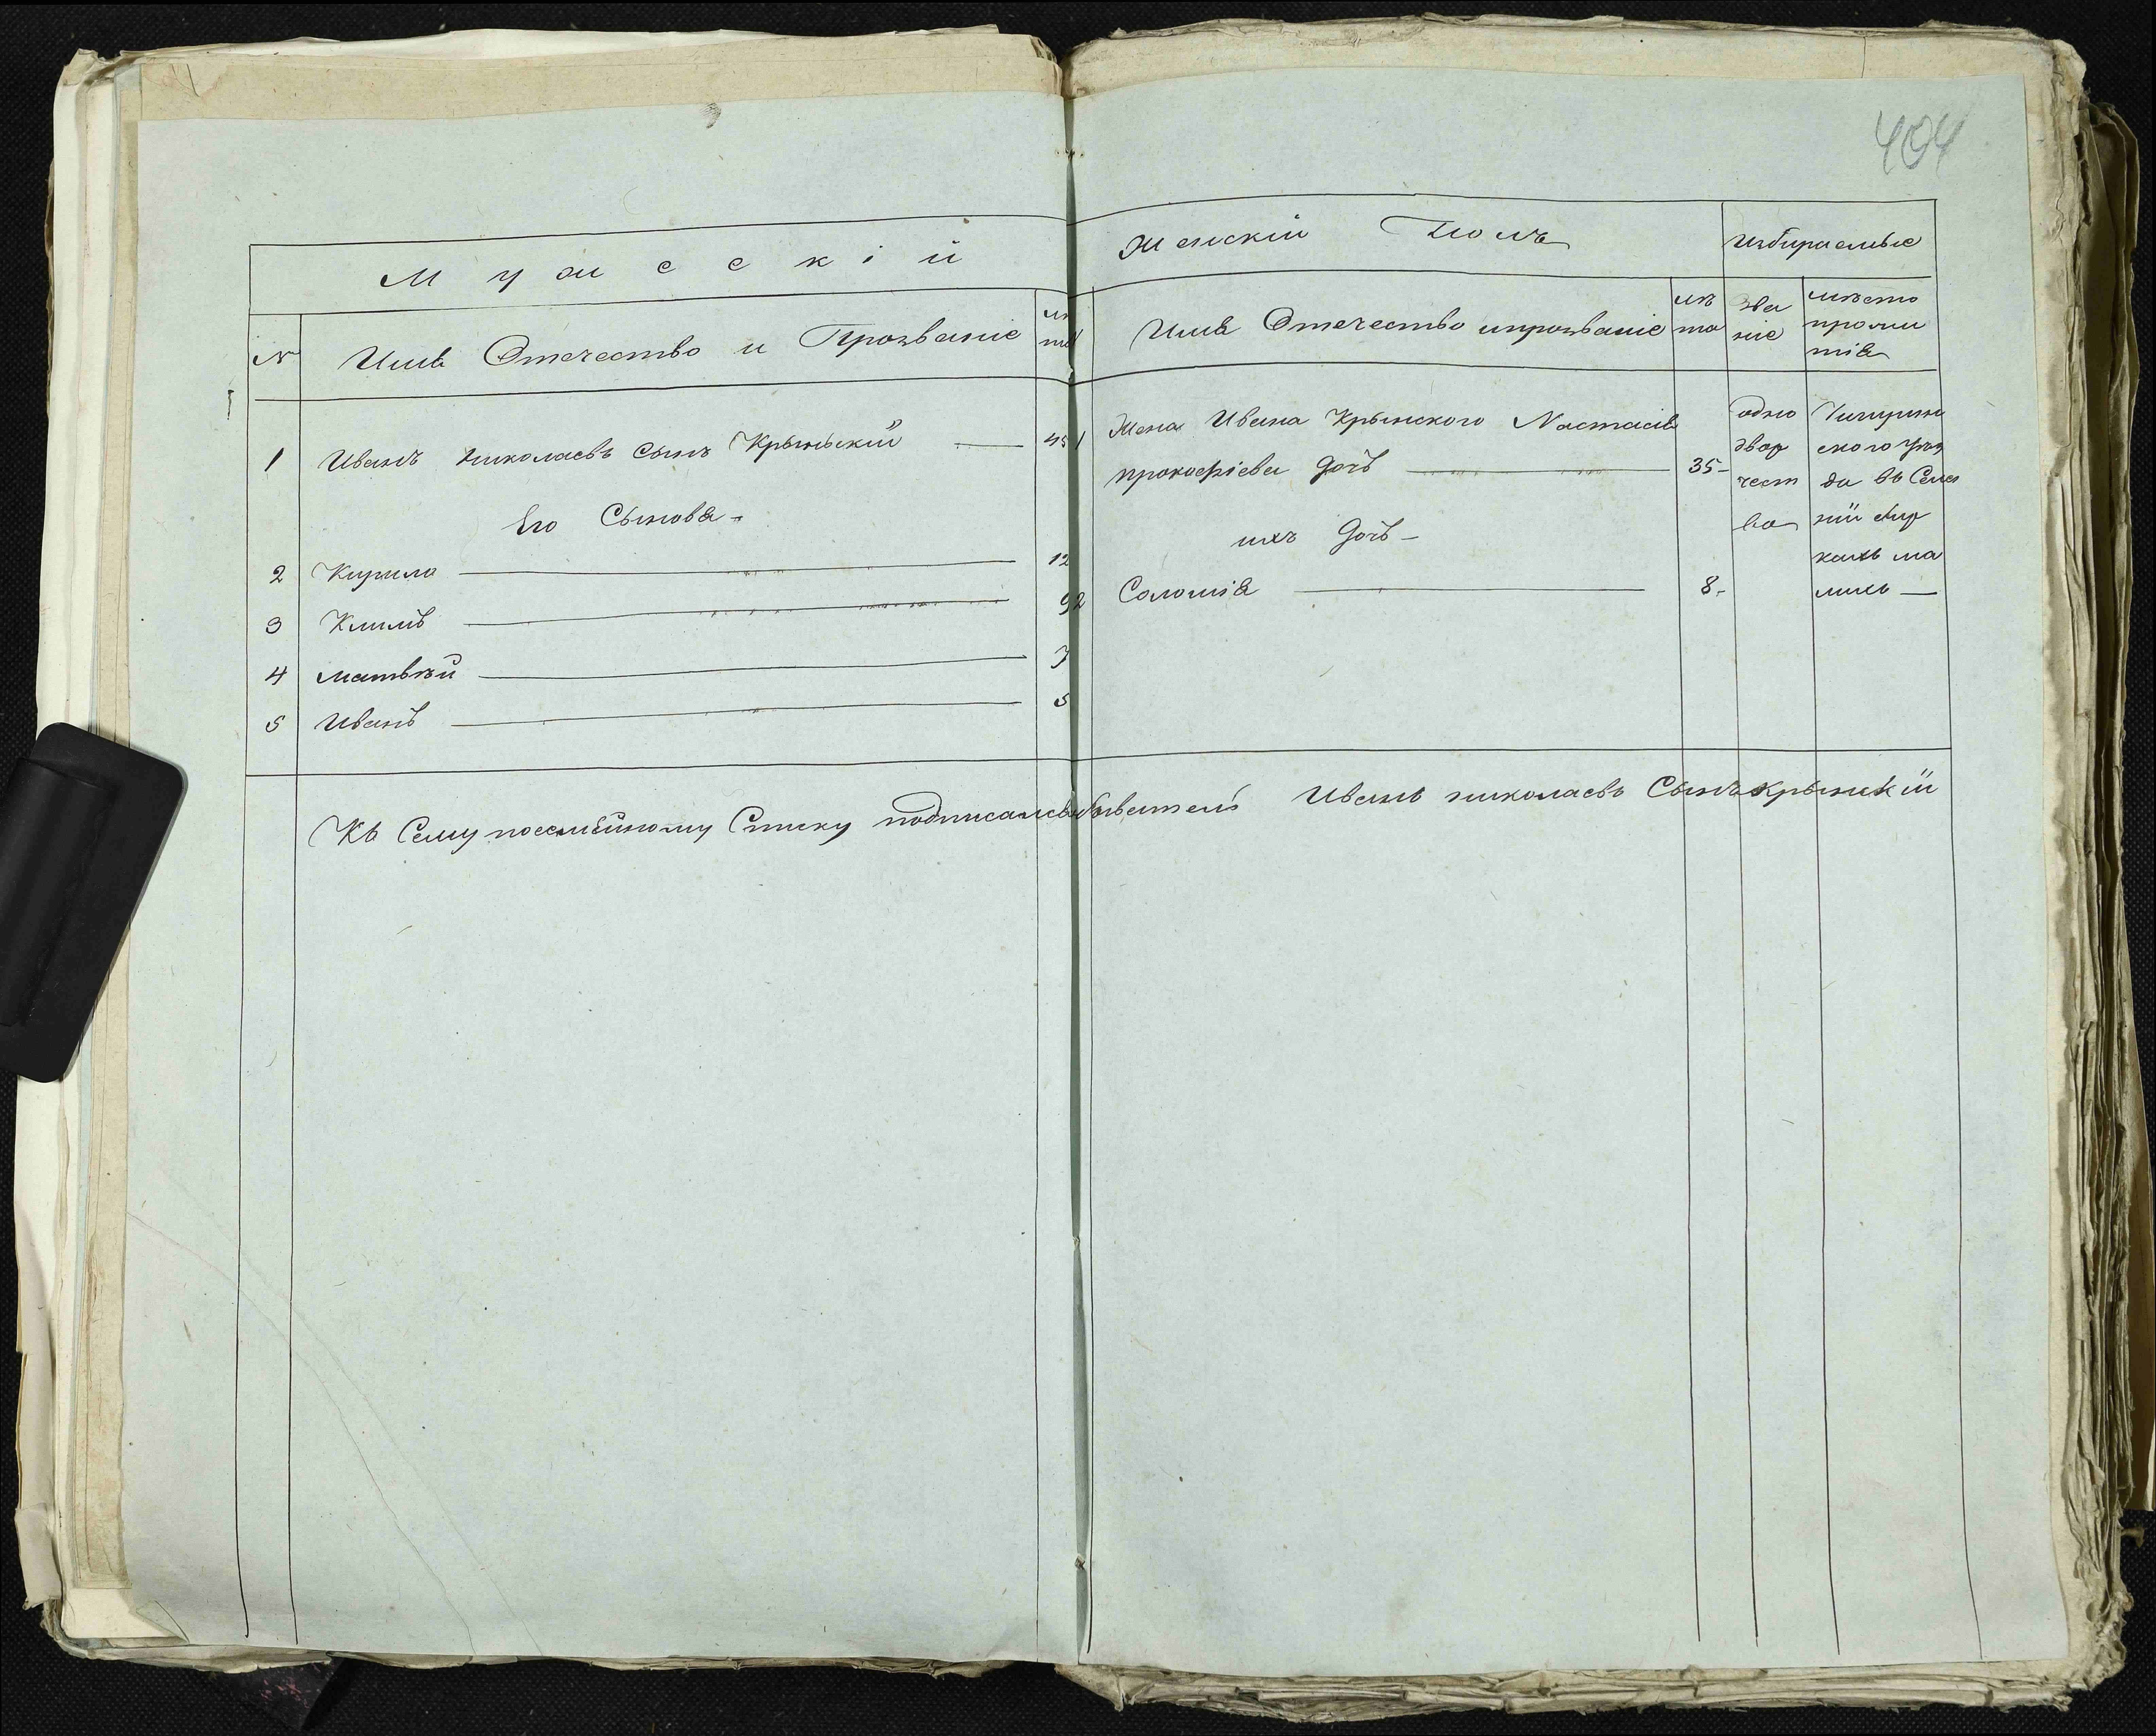 404
Мужескій
№ Имя Отечество и Прозваніе лѣта
1 Иванъ николаевъ Сынъ Крыньскій 45
Его Сыновя
2 Кирило 12
3 Климъ 9
4 матвѣй 7
5 Иванъ 5
Женскій Полъ
Имя Отечество ипрозваніе лѣта
1 Жена Ивана Крынского Настасія
прокофіева дочь 35
ихъ дочь
2 Соломія 8
избираемые
зва
ніе
одно
двор
чест
во
мѣсто
прожи
тія
Чигирин
ского уѣз
да въ Селе
ніи
кахъ ма
лихъ
Къ Сему посемейному Списку подписался обыватель Иванъ николаевъ Сынъ Крынскій